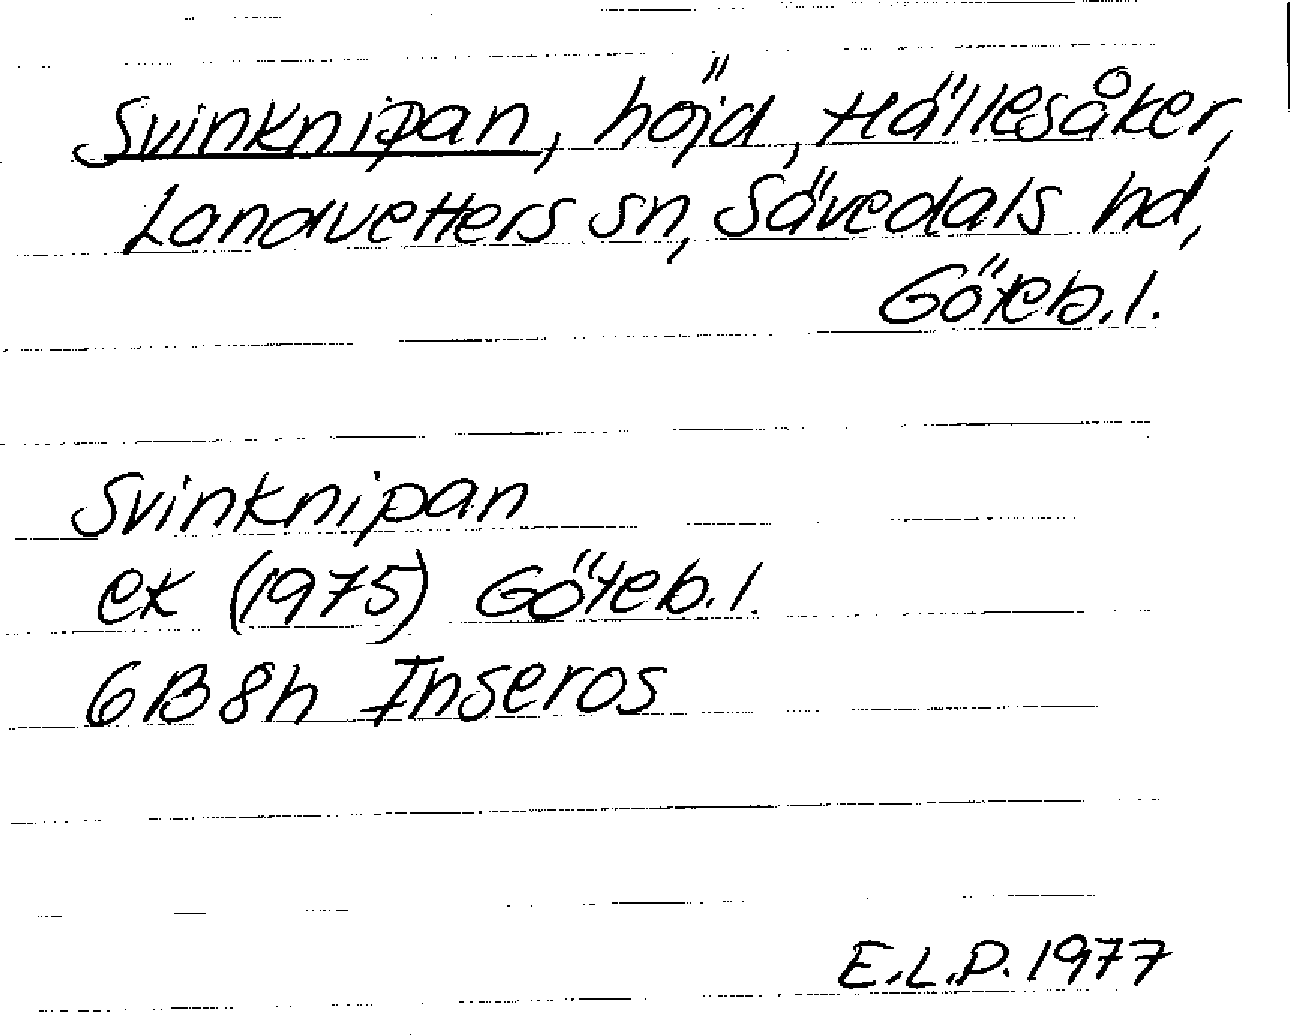 Svinknipan, höjd, Hällesåker,
Landvetters sn, Sävedals hd,
Göteb. l.
Svinknipan
ek (1975) Göteb. l.
6B8h Inseros
E.L.P. 1977